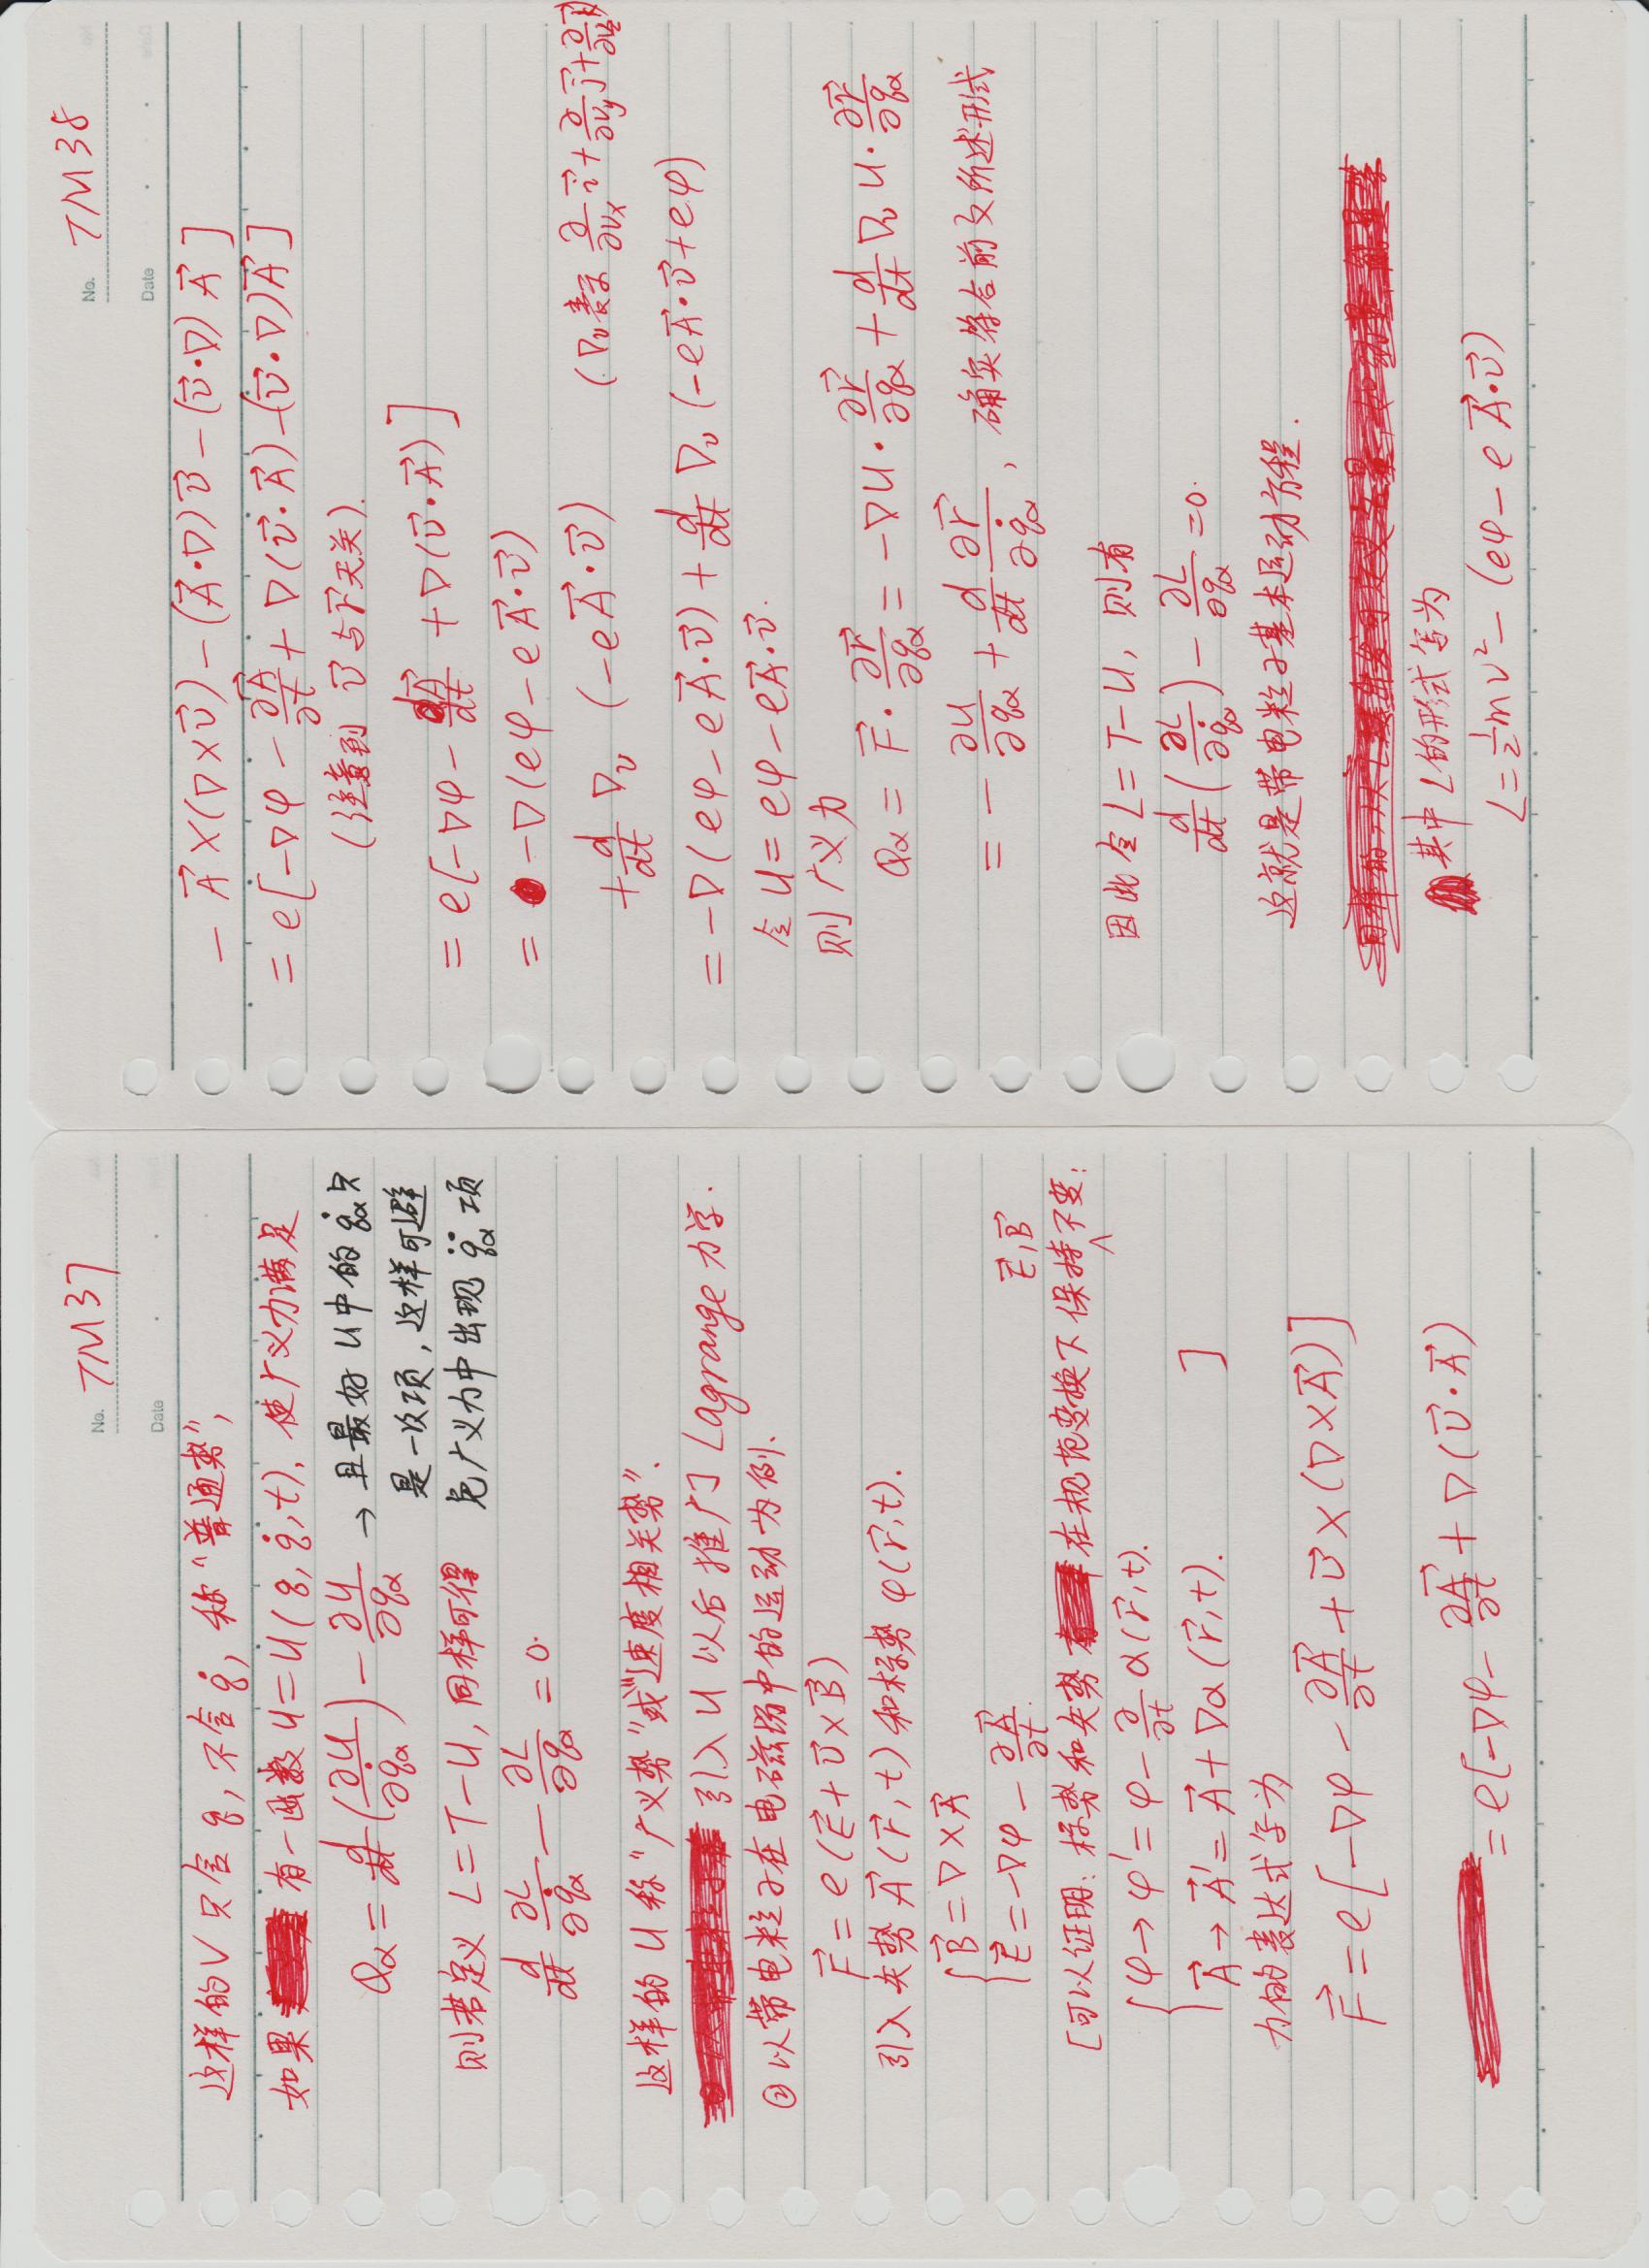 No. TM37
Date
这样的V只含q, 不含q̇, 称“普通势”,
如果 有一函数 U=U(q, q̇, t), 使广义力满足
Qα = d/dt (∂U/∂q̇α) − ∂U/∂qα → 且最好U中的q̇α只
是一次项, 这样可避
免广义力中出现 q̈α 项
则若定义 L=T−U, 同样可得
d/dt ∂L/∂q̇α − ∂L/∂qα = 0.
这样的U称“广义势”或“速度相关势”.
引入U以后推广Lagrange力学.
②以带电粒子在电磁场中的运动为例.
F⃗ = e(E⃗ + v⃗×B⃗)
引入矢势 A⃗(r⃗,t) 和标势 φ(r⃗,t).
{ B⃗ = ∇×A⃗
E⃗ = −∇φ − ∂A⃗/∂t.
[可以证明: 标势和矢势 在规范变换下保持 E⃗,B⃗ 不变:
{ φ → φ' = φ − ∂/∂t α(r⃗,t).
A⃗ → A⃗' = A⃗ + ∇α(r⃗,t). ]
力的表达式写为
F⃗ = e[−∇φ − ∂A⃗/∂t + v⃗×(∇×A⃗)]
= e[−∇φ − ∂A⃗/∂t + ∇(v⃗·A⃗)
No. TM38
Date
− A⃗×(∇×v⃗) − (A⃗·∇)v⃗ − (v⃗·∇)A⃗]
= e[−∇φ − ∂A⃗/∂t + ∇(v⃗·A⃗) − (v⃗·∇)A⃗]
(注意到 v⃗与r⃗无关).
= e[−∇φ − dA⃗/dt + ∇(v⃗·A⃗)]
= −∇(eφ − eA⃗·v⃗)
+ d/dt ∇v (−eA⃗·v⃗) (∇v表示 ∂/∂vx i⃗ + ∂/∂vy j⃗ + ∂/∂vz k⃗)
= −∇(eφ − eA⃗·v⃗) + d/dt ∇v (−eA⃗·v⃗ + eφ)
令 U = eφ − eA⃗·v⃗.
则广义力
Qα = F⃗·∂r⃗/∂qα = −∇U·∂r⃗/∂qα + d/dt ∇v U·∂r⃗/∂qα
= −∂U/∂qα + d/dt ∂r⃗/∂q̇α, 确实符合前文所述形式
因此令L=T−U, 则有
d/dt (∂L/∂q̇α) − ∂L/∂qα = 0.
这就是带电粒子基本运动方程.
其中L的形式写为
L = ½mv² − (eφ − eA⃗·v⃗)